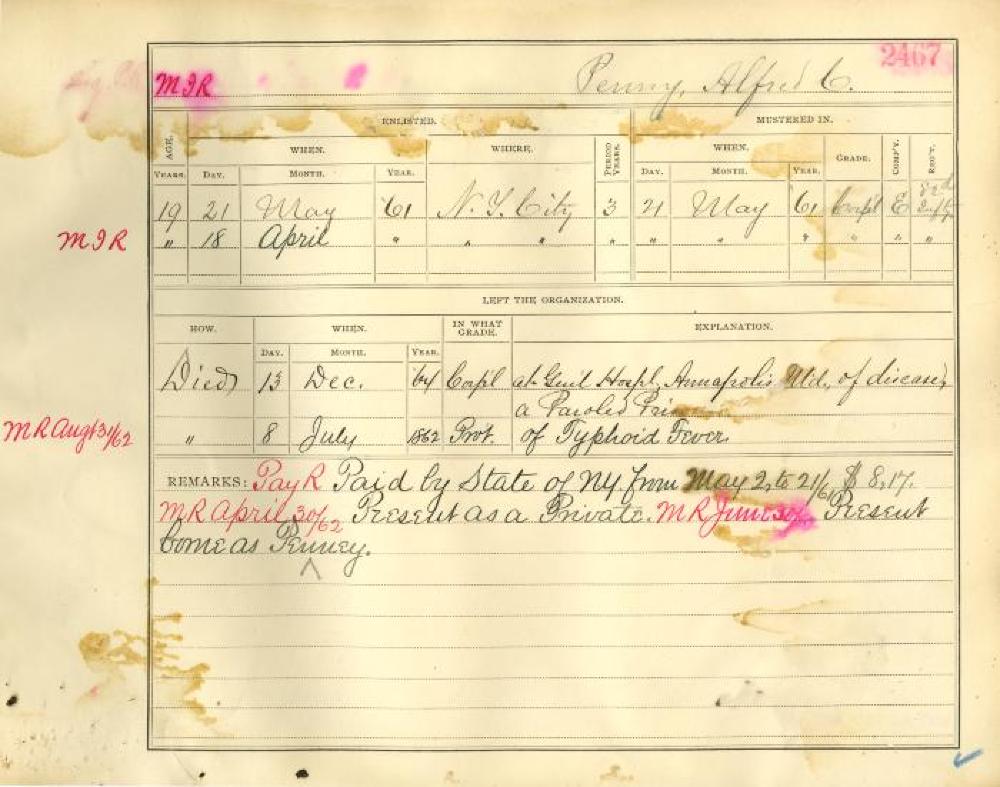 2467
M I R Penny, Alfred C.
ENLISTED. MUSTERED IN.
AGE. WHEN. WHERE. PERIOD YEARS. WHEN. GRADE. COMP'Y. REG'T.
YEARS. DAY. MONTH. YEAR. DAY. MONTH. YEAR.
19 21 May 61 N. Y. City 3 21 May 61 Corpl E 3rd Inf
M I R " 18 April " " " " " " " " " "
LEFT THE ORGANIZATION.
HOW. WHEN. IN WHAT GRADE. EXPLANATION.
DAY. MONTH. YEAR.
Died 13 Dec. 64 Corp'l at Gen'l Hosp'l, Annapolis Md., of disease,
a Paroled
M R Augt 31/62 " 8 July 1862 Prvt. of Typhoid Fever.
REMARKS: Pay R Paid by State of NY from May 2, to 21/61 $ 8.17.
M R April 30/62 Present as a Private. M R June 30/ Present
borne as Penney.